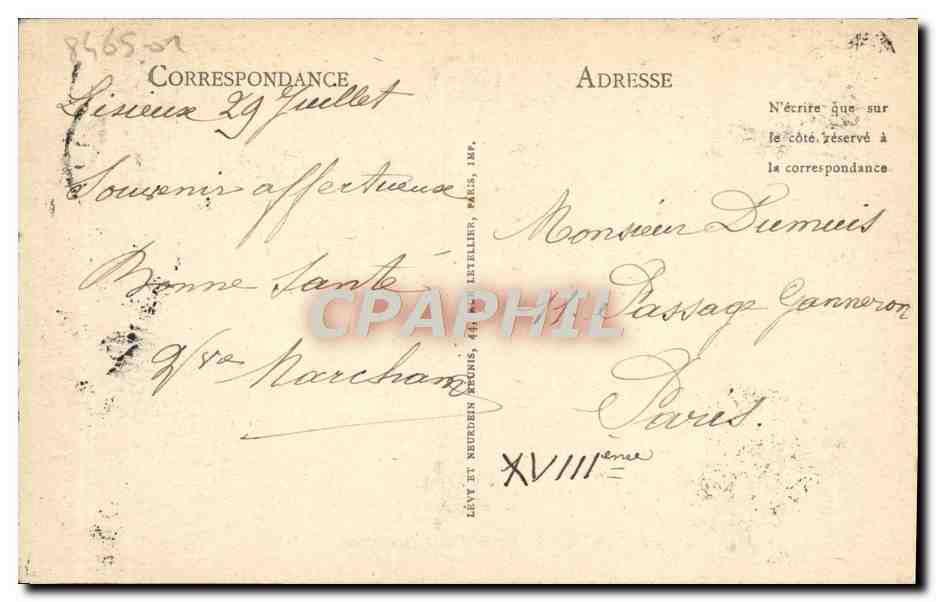 8465-01
CORRESPONDANCE
Lisieux 29 Juillet
Souvenir affectueux
Bonne Santé
Vve Marcham
LÉVY ET NEURDEIN RÉUNIS, 44, RUE LETELLIER, PARIS, IMP.
ADRESSE
N'écrire que sur
le côté réservé à
la correspondance
Monsieur Dumuis
11 Passage Ganneron
Paris.
XVIIIième
CPAPHIL